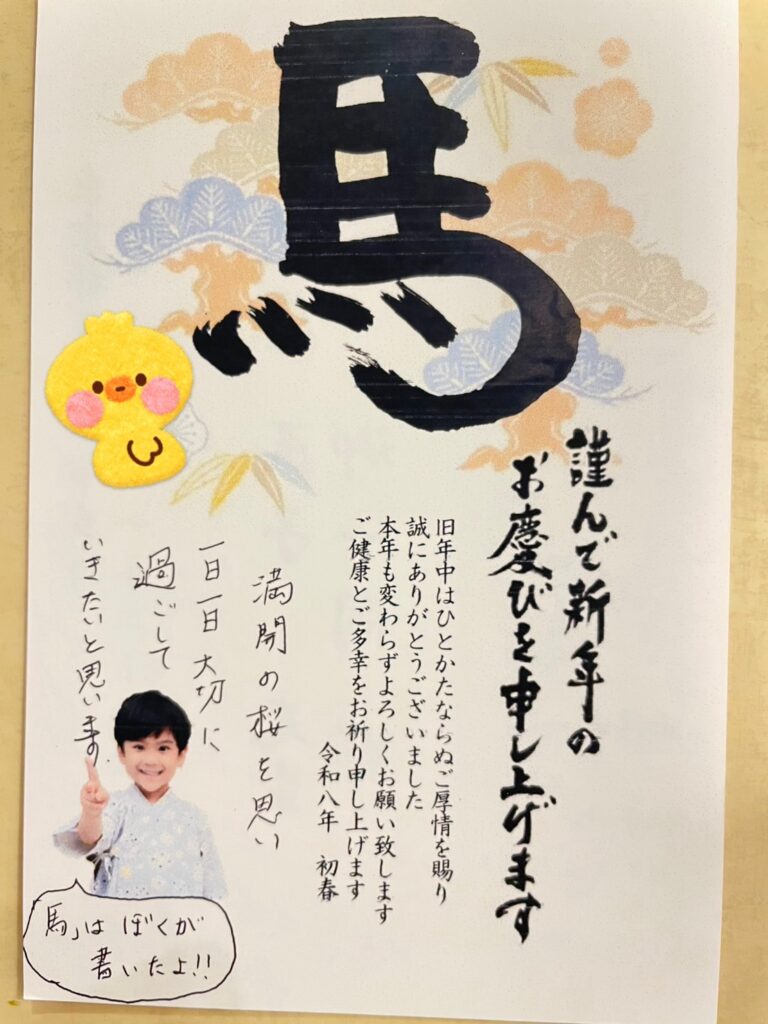 馬
謹んで新年の
お慶びを申し上げます
旧年中はひとかたならぬご厚情を賜り
誠にありがとうございました
本年も変わらずよろしくお願い致します
ご健康とご多幸をお祈り申し上げます
令和八年　初春
満開の桜を思い
一日一日 大切に
過ごして
いきたいと思います。
馬」は ぼくが
書いたよ!!